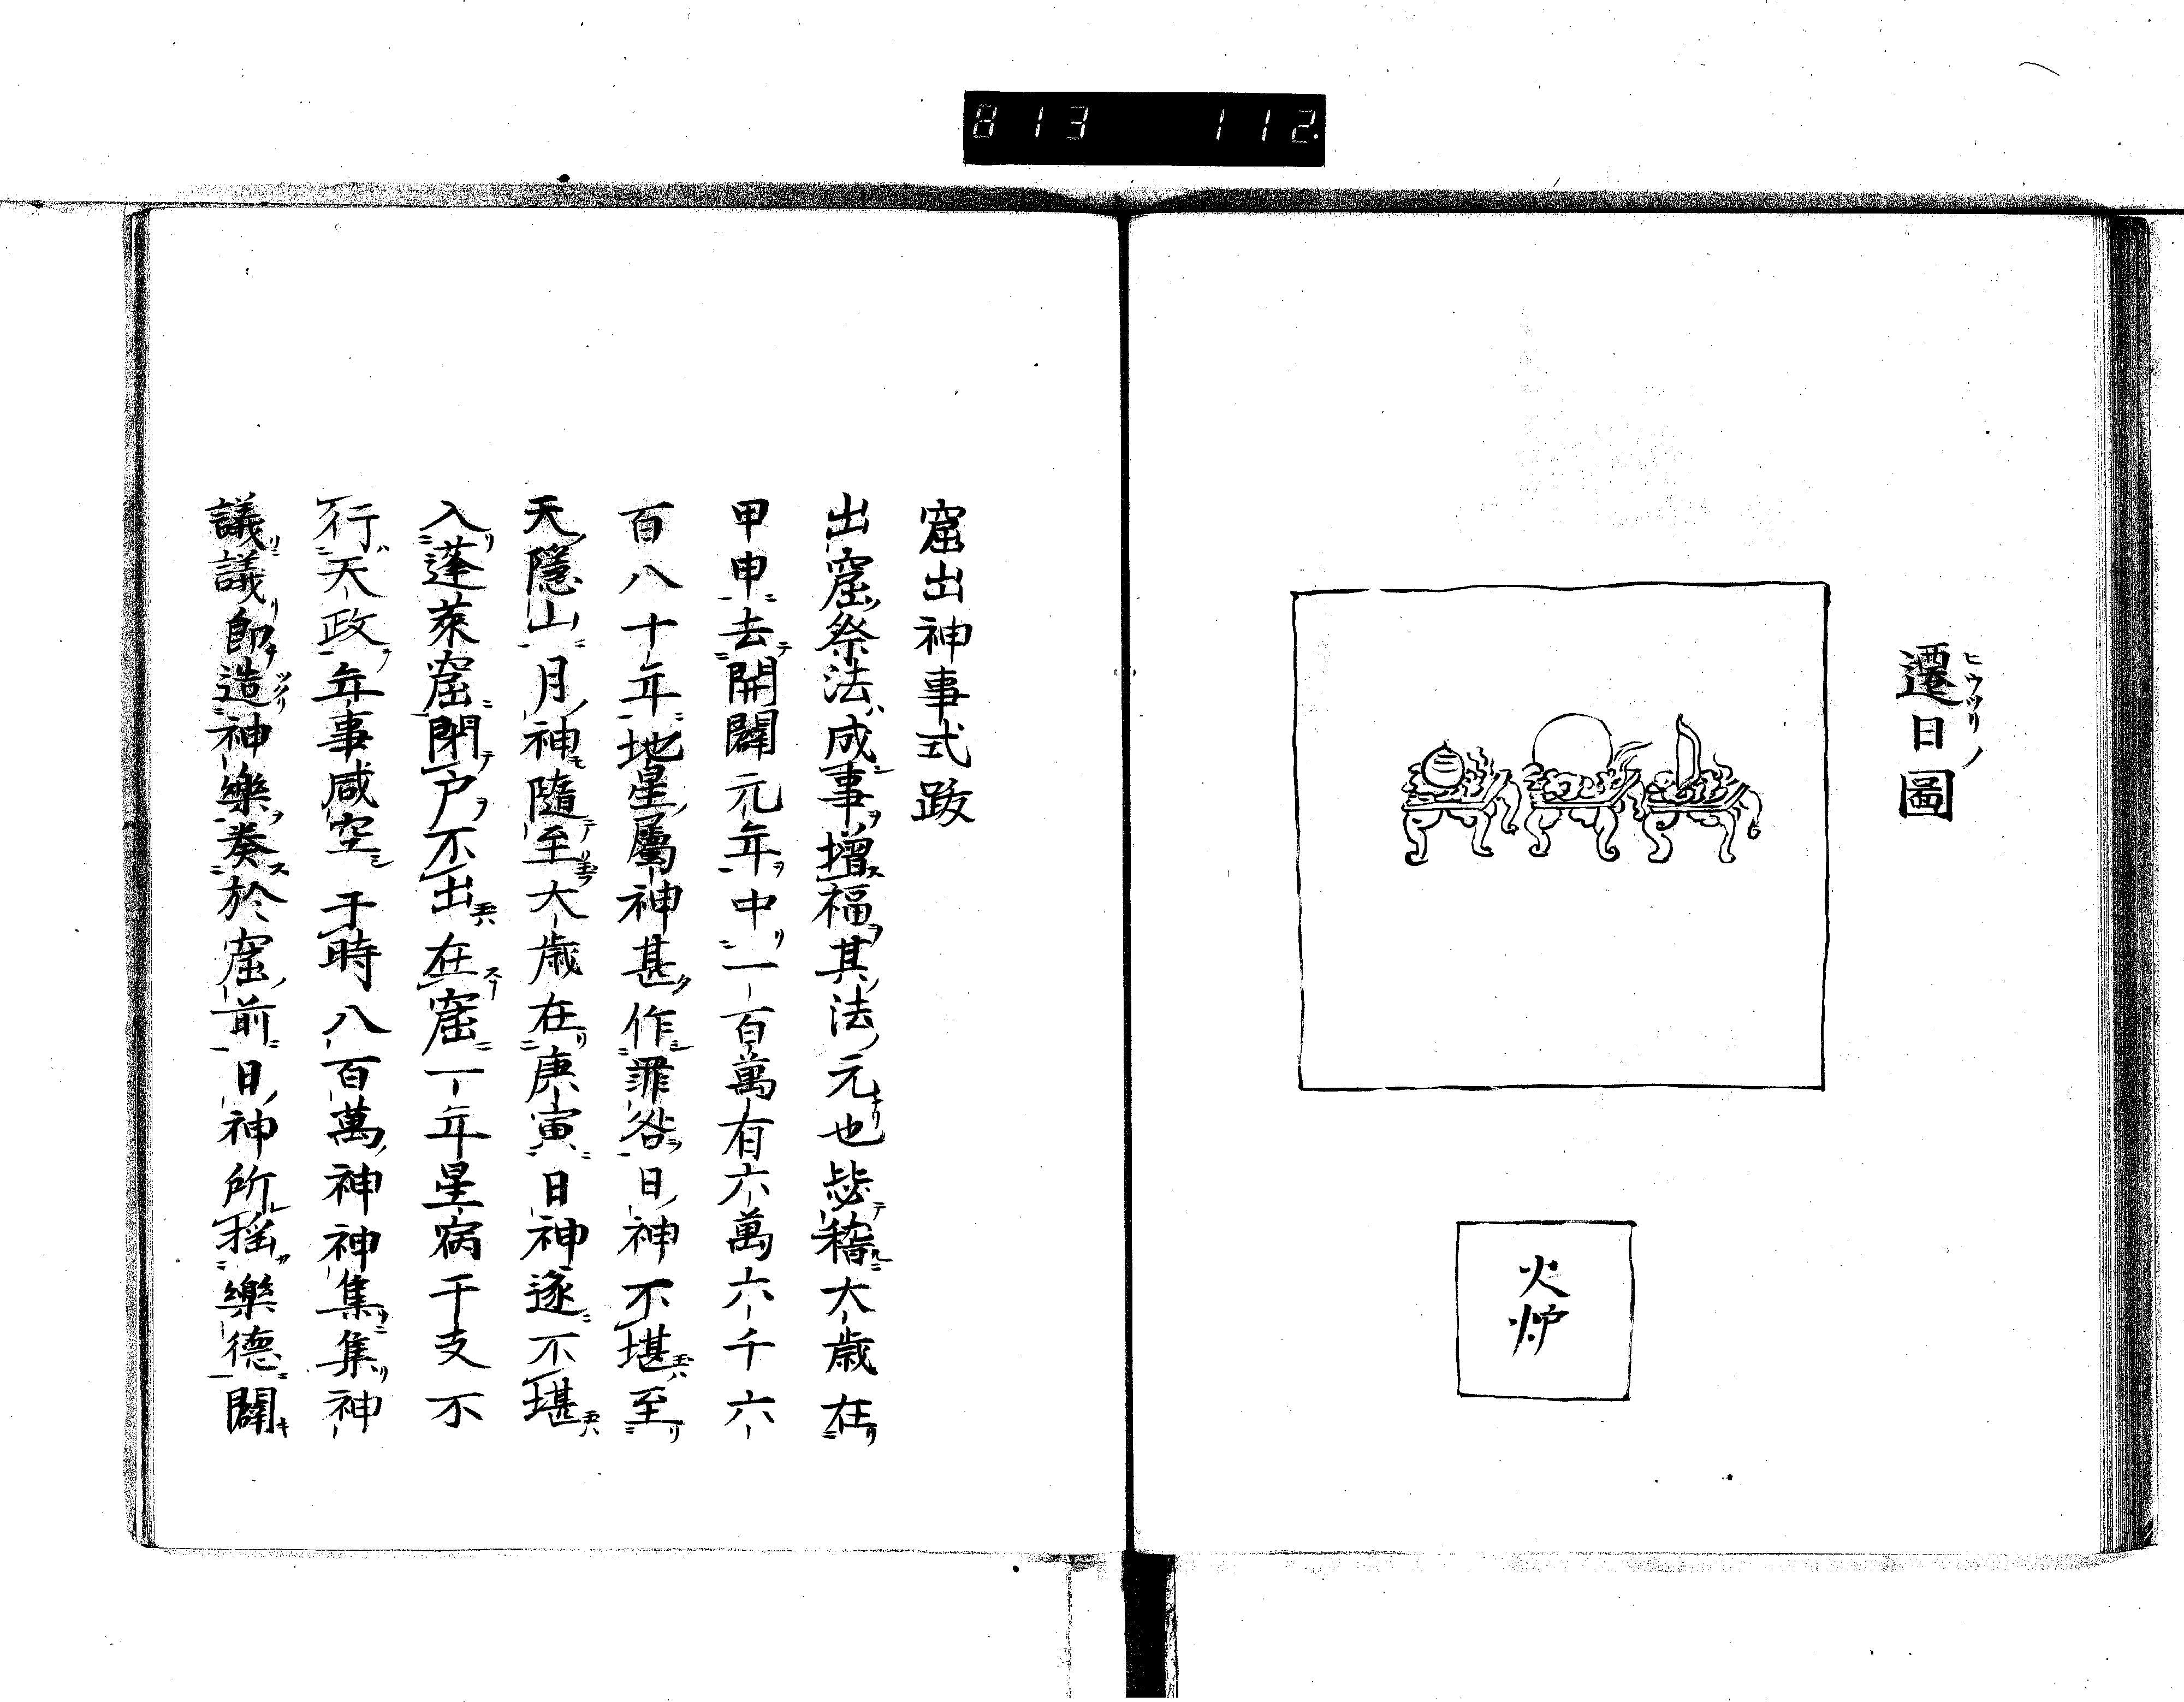 813 112
遷日圖
ヒウツリノ
火炉
窟出神事式跋
出窟祭法成事增福其法元也毖稽大歳在
甲申去開闢元年中一百萬有六萬六千六
百八十年地星屬神甚作罪咎日神不堪至
天隱山月神隨至大歳在庚寅日神遂不堪
入蓬萊窟閉戸不出在窟一年星病干支不
行天政年事咸空于時八百萬神神集集神
議議即造神樂奏於窟前日神所搖樂德闢